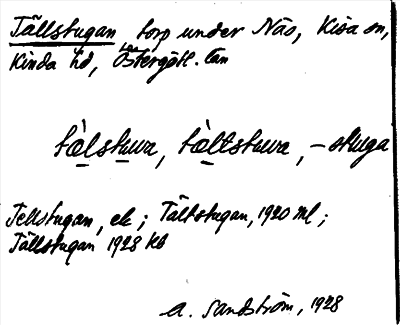 Tällstugan torp under Näs, Kisa sn,
Kinda hd, Östergötl. län
tæ̀lstuwa, tæ̀ltstuwa, -stuga
Tellstugan, ek; Tältstugan, 1920 ml;
Tällstugan 1928 kb
A. Sandström, 1928